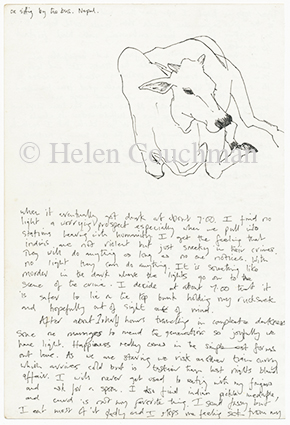 by the bus. Nepal.
© Helen Couchman
when it eventually got dark at about 7:00. I find no
light a worrying prospect especially when we pull into
stations heaving with humanity I get the feeling that
indians are not violent but just sneaking in their crimes.
They will do anything so long as no one notices. With
no light they can do anything. It is something like
murder in the dark where the lights go on to the
scene of the crime. I decide at about 7:00 that it
is safer to lie on the top bunk holding my rucksack
and hopefully out of sight out of mind.
After about 2 hours travelling in complete darkness
some one manages to mend the generator so joyfully we
have light. Happiness really comes in the simplest forms
out here. As we are starving we risk another train curry
which arrives cold but is tastier than last nights
affair. I will never get used to eating with my fingers
and ask for a spoon. I also find indian
and curd is not my favorite thing I
I eat most of it and I my